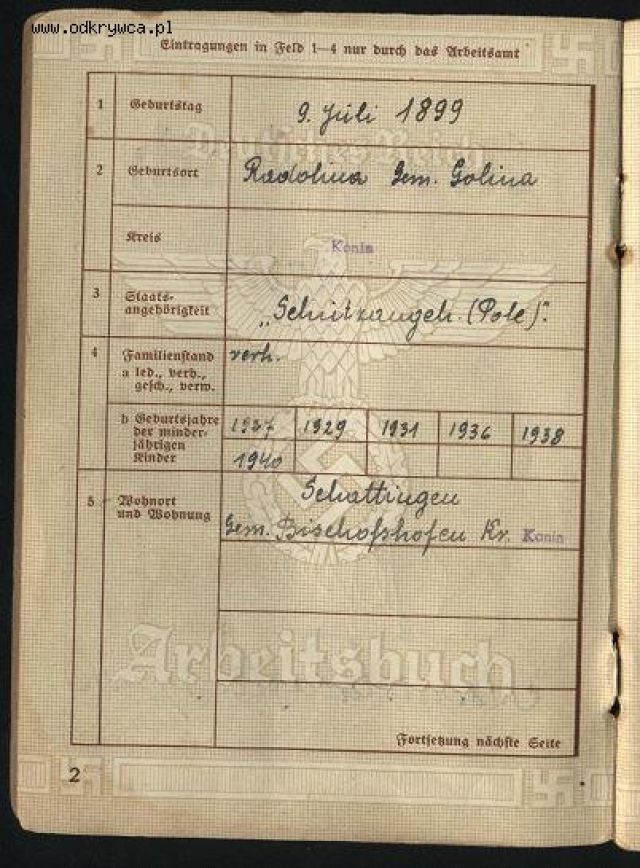 www.odkrywca.pl
Eintragungen in Feld 1—4 nur durch das Arbeitsamt
1 Geburtstag 9. Juli 1899
Deutsches Reich
2 Geburtsort Radolina Gem. Golina
Kreis Konin
3 Staats-
angehörigkeit „Schutzangeh. (Pole)".
4 Familienstand verh.
a led., verh.,
gesch., verw.
b Geburtsjahre 1927 1929 1931 1936 1938
der minder-
jährigen
Kinder 1940
5 Wohnort Schattingen
und Wohnung Gem. Bischofshofen Kr. Konin
Arbeitsbuch
Fortsetzung nächste Seite
2